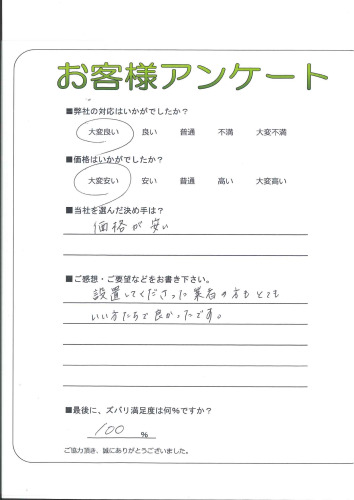 お客様アンケート
■弊社の対応はいかがでしたか？
大変良い 良い 普通 不満 大変不満
■価格はいかがでしたか？
大変安い 安い 普通 高い 大変高い
■当社を選んだ決め手は？
価格が安い
■ご感想・ご要望などをお書き下さい。
設置してくださった業者の方もとても
いい方たちで良かったです。
■最後に、ズバリ満足度は何％ですか？
100 ％
ご協力頂き、誠にありがとうございました。